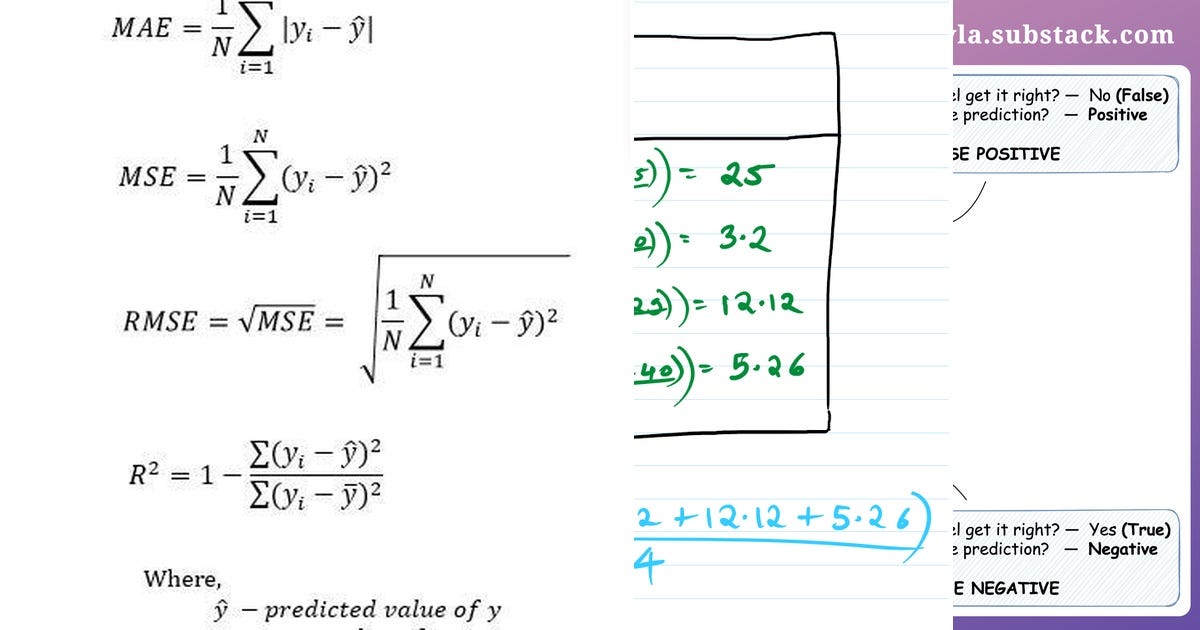 MAE = 1/N ∑ i=1 |yᵢ − ŷ|
MSE = 1/N ∑ i=1 N (yᵢ − ŷ)²
RMSE = √MSE = √(1/N ∑ i=1 N (yᵢ − ŷ)²)
R² = 1 − Σ(yᵢ − ŷ)² / Σ(yᵢ − ȳ)²
Where,
ŷ − predicted value of y
5)) = 25
0)) = 3.2
25)) = 12.12
40)) = 5.26
2 + 12.12 + 5.26)
4
la.substack.com
get it right? — No (False)
prediction? — Positive
SE POSITIVE
get it right? — Yes (True)
prediction? — Negative
E NEGATIVE